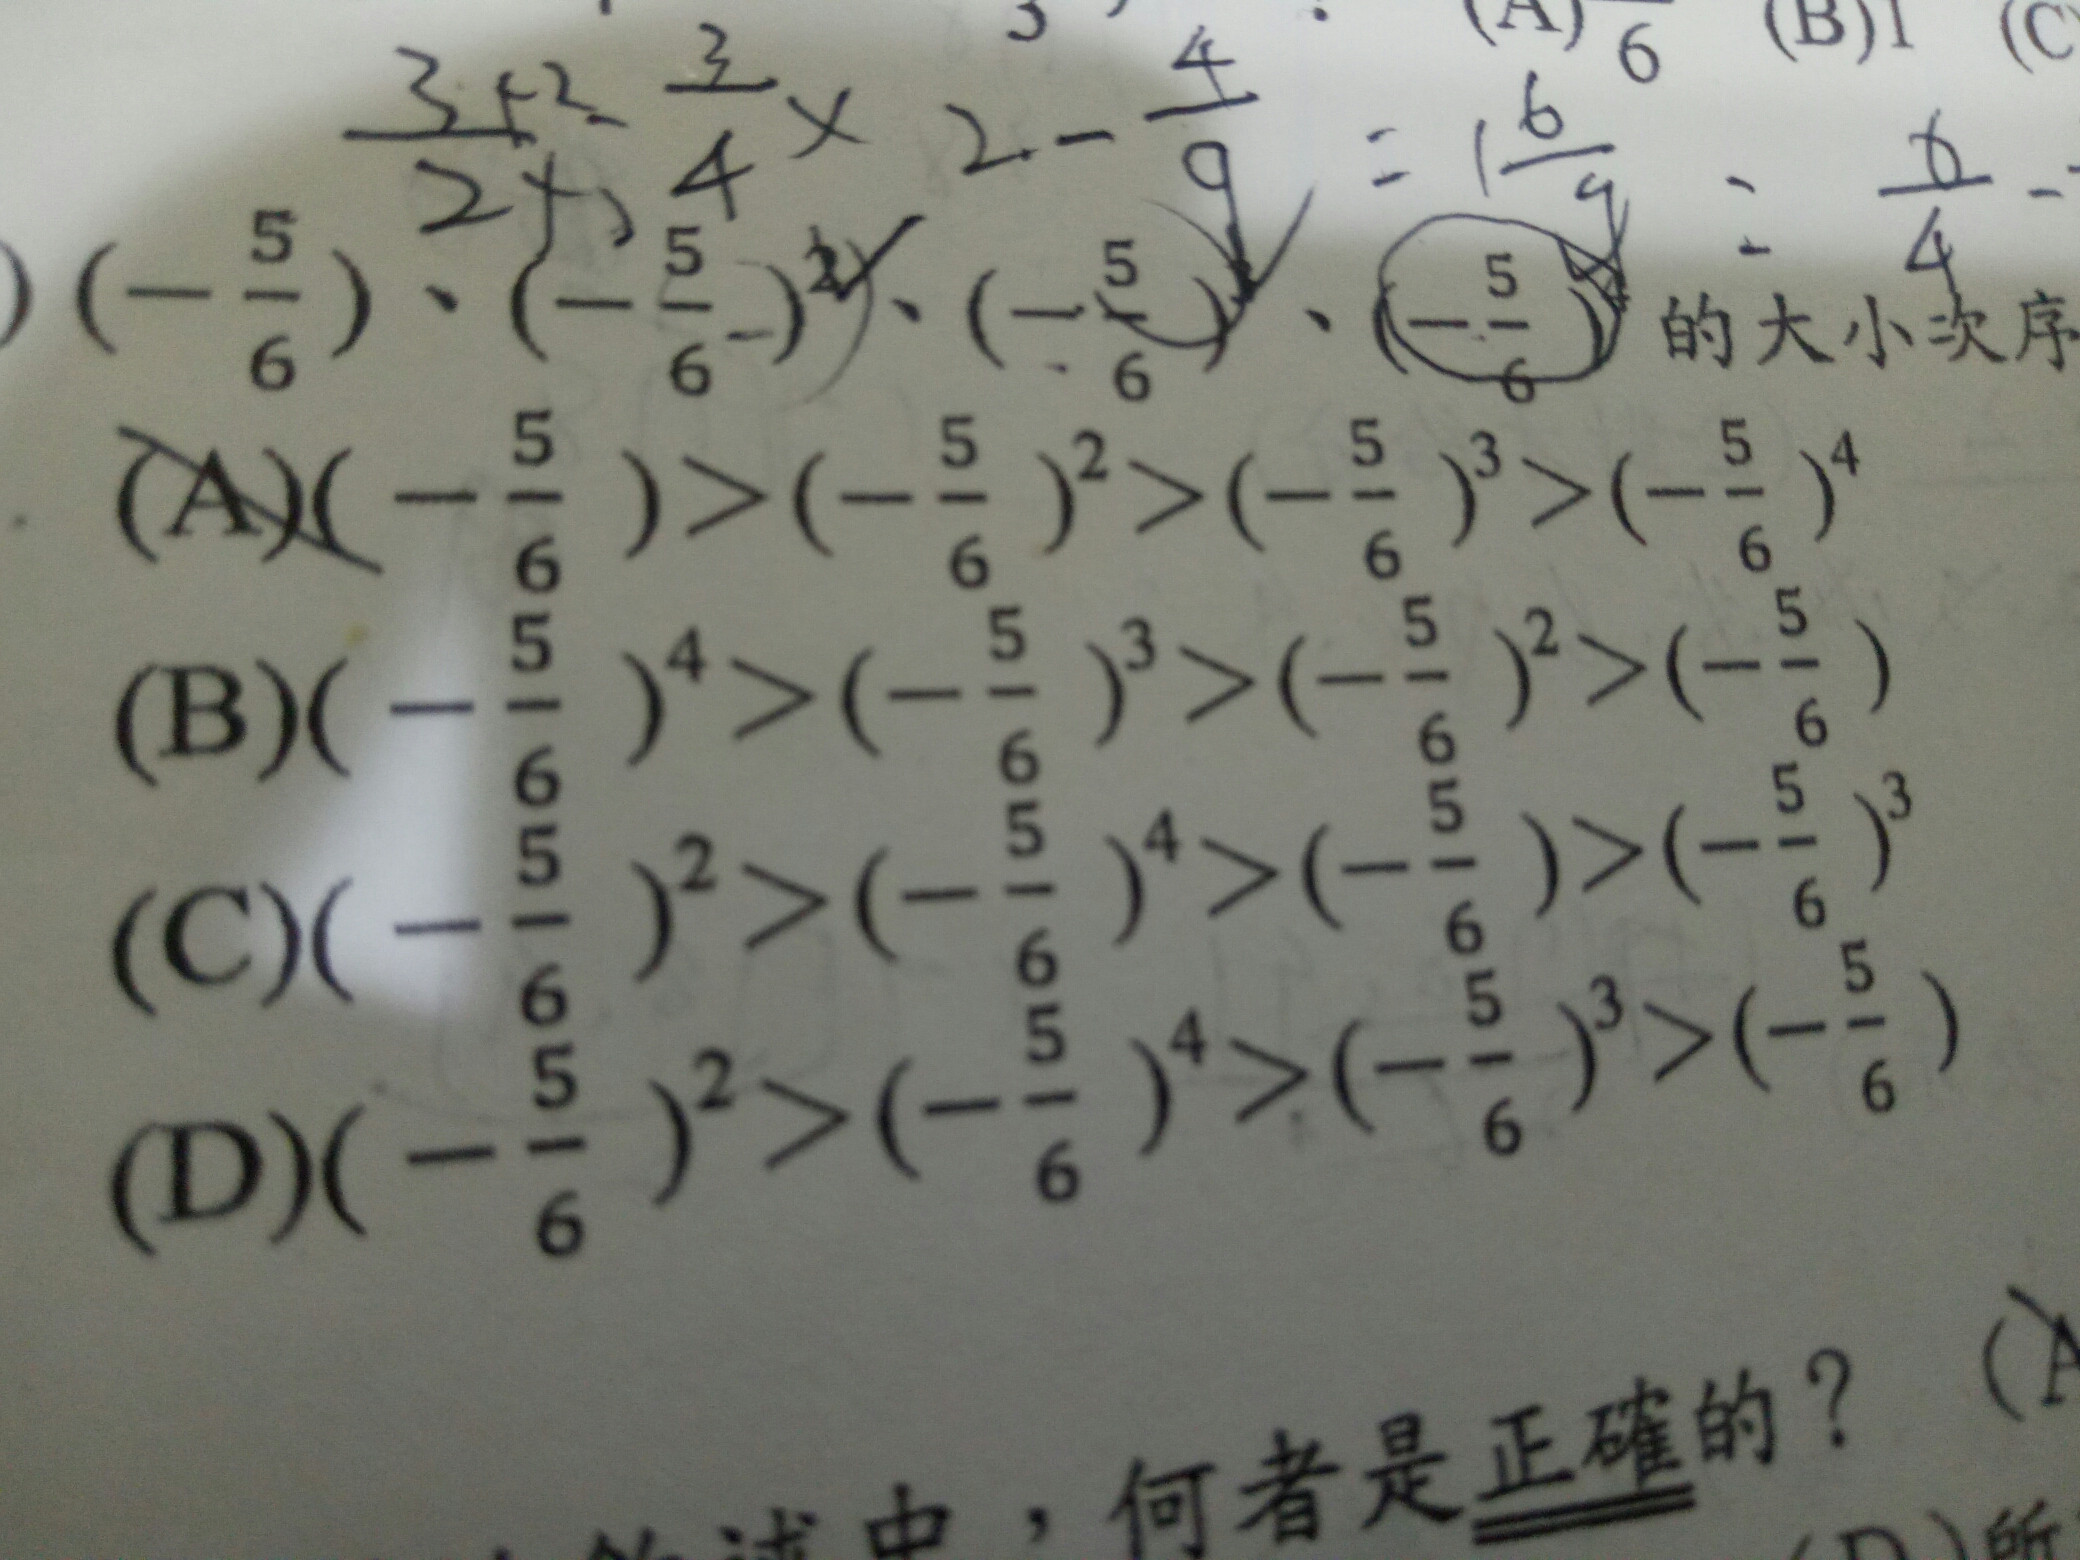 3 (A) 6 (B)1 (C
3+2 / 2+ 3/4 × 2 - 4/9 = 1 6/9 = 6/4 -
) (－5/6)、(－5/6)²、(－5/6)、(－5/6) 的大小次序
(A)(－5/6)＞(－5/6)²＞(－5/6)³＞(－5/6)⁴
(B)(－5/6)⁴＞(－5/6)³＞(－5/6)²＞(－5/6)
(C)(－5/6)²＞(－5/6)⁴＞(－5/6)＞(－5/6)³
(D)(－5/6)²＞(－5/6)⁴＞(－5/6)³＞(－5/6)
中，何者是正確的？ (A
(D)所